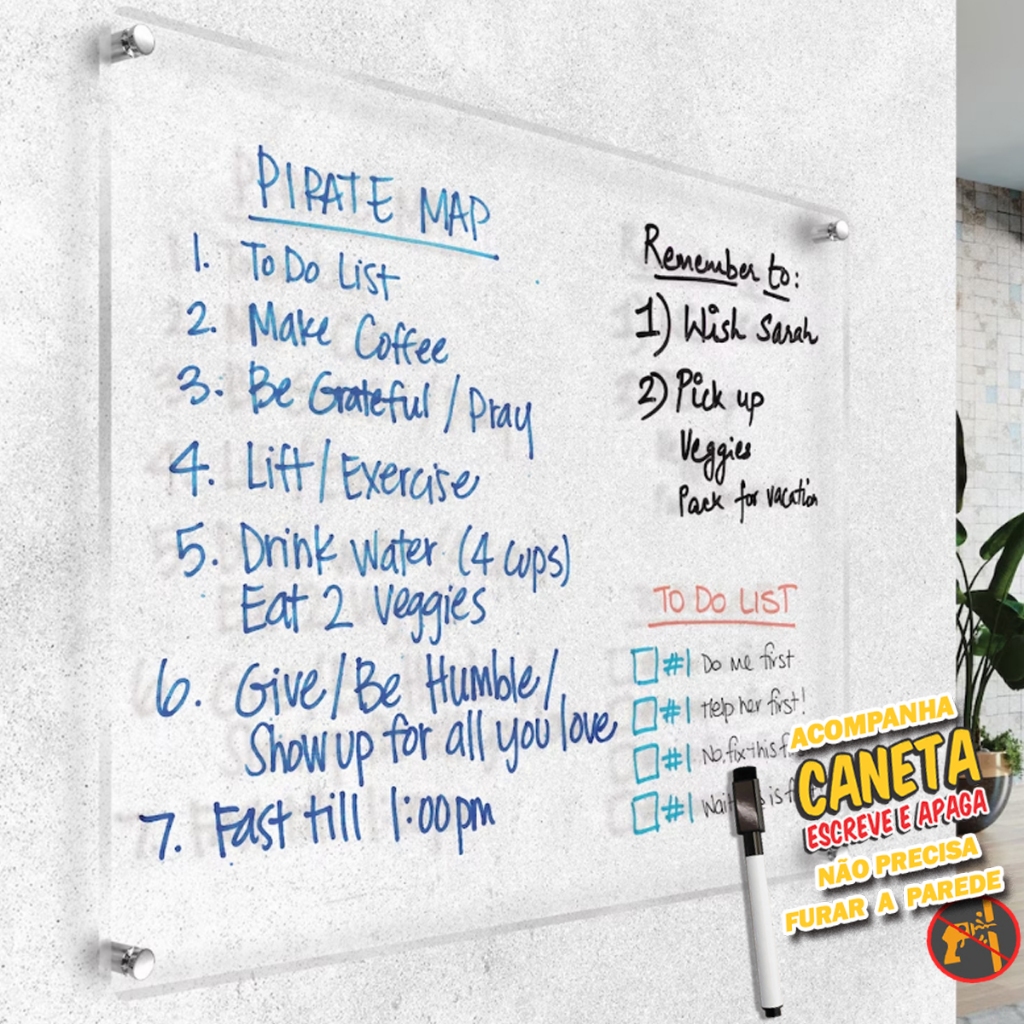 PIRATE MAP
1. To Do List
2. Make Coffee
3. Be Grateful / Pray
4. Lift / Exercise
5. Drink Water (4 cups)
Eat 2 Veggies
6. Give / Be Humble /
Show up for all you love
7. Fast till 1:00pm
Remember to:
1) Wish Sarah
2) Pick up
Veggies
Pack for vacation
TO DO LIST
#1 Do me first
#1 Help her first!
#1 No, fix this
#1
ACOMPANHA
CANETA
ESCREVE E APAGA
NÃO PRECISA
FURAR A PAREDE